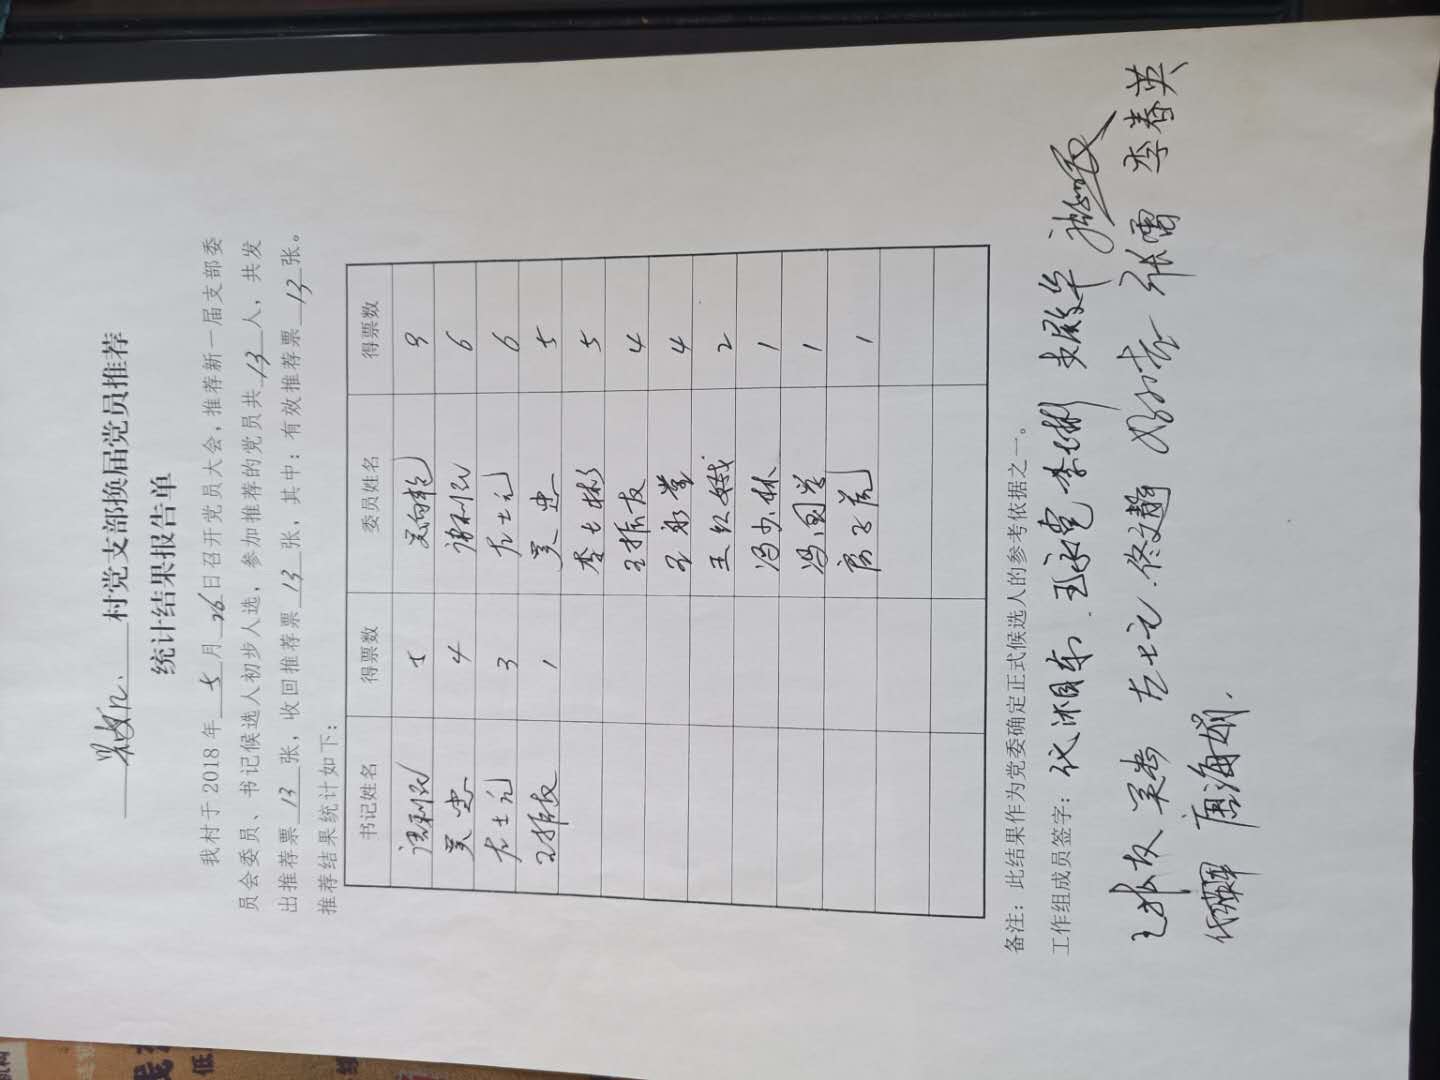 村党支部换届党员推荐
统计结果报告单
我村于2018年5月26日召开党员大会，推荐新一届支部委
员会委员、书记候选人初步人选，参加推荐的党员共13人，共发
出推荐票13张，收回推荐票13张，其中：有效推荐票13张。
推荐结果统计如下：
书记姓名 得票数 委员姓名 得票数
5 9
吴忠 4 6
左士元 3 左士元 6
王振友 1 吴忠 5
李士彬 5
王振友 4
王永党 4
王红娥 2
冯少林 1
冯国兴 1
1
备注：此结果作为党委确定正式候选人的参考依据之一。
工作组成员签字：代湘东 王永党 李士彬
王振友 吴忠 左士元 佟文静 张儒 李春英
代辉 唐海娟